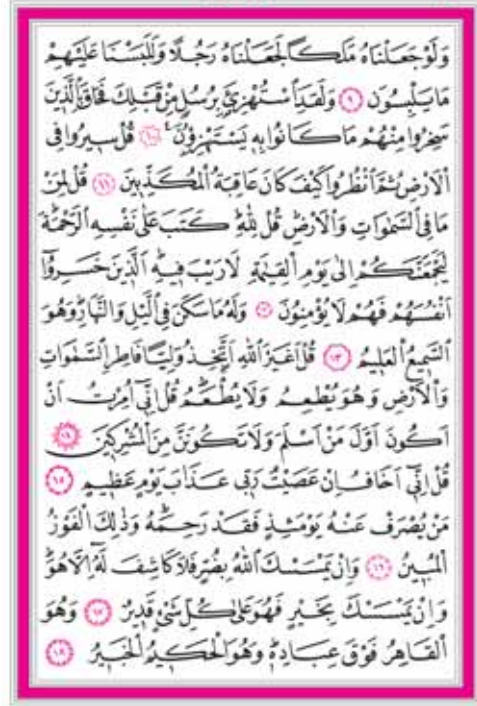 وَلَوْ جَعَلْنَاهُ مَلَكًا لَجَعَلْنَاهُ رَجُلًا وَلَلَبَسْنَا عَلَيْهِمْ
مَا يَلْبِسُونَ ﴿٩﴾ وَلَقَدِ اسْتُهْزِئَ بِرُسُلٍ مِنْ قَبْلِكَ فَحَاقَ بِالَّذِينَ
سَخِرُوا مِنْهُمْ مَا كَانُوا بِهِ يَسْتَهْزِؤُنَ ﴿١٠﴾ قُلْ سِيرُوا فِي
الْاَرْضِ ثُمَّ انْظُرُوا كَيْفَ كَانَ عَاقِبَةُ الْمُكَذِّبِينَ ﴿١١﴾ قُلْ لِمَنْ
مَا فِي السَّمٰوَاتِ وَالْاَرْضِ قُلْ لِلّٰهِ كَتَبَ عَلٰى نَفْسِهِ الرَّحْمَةَ
لَيَجْمَعَنَّكُمْ اِلٰى يَوْمِ الْقِيٰمَةِ لَا رَيْبَ فِيهِ اَلَّذِينَ خَسِرُوا
اَنْفُسَهُمْ فَهُمْ لَا يُؤْمِنُونَ ﴿١٢﴾ وَلَهُ مَا سَكَنَ فِي الَّيْلِ وَالنَّهَارِ وَهُوَ
السَّمِيعُ الْعَلِيمُ ﴿١٣﴾ قُلْ اَغَيْرَ اللّٰهِ اَتَّخِذُ وَلِيًّا فَاطِرِ السَّمٰوَاتِ
وَالْاَرْضِ وَهُوَ يُطْعِمُ وَلَا يُطْعَمُ قُلْ اِنِّي اُمِرْتُ اَنْ
اَكُونَ اَوَّلَ مَنْ اَسْلَمَ وَلَا تَكُونَنَّ مِنَ الْمُشْرِكِينَ ﴿١٤﴾
قُلْ اِنِّي اَخَافُ اِنْ عَصَيْتُ رَبِّي عَذَابَ يَوْمٍ عَظِيمٍ ﴿١٥﴾
مَنْ يُصْرَفْ عَنْهُ يَوْمَئِذٍ فَقَدْ رَحِمَهُ وَذٰلِكَ الْفَوْزُ
الْمُبِينُ ﴿١٦﴾ وَاِنْ يَمْسَسْكَ اللّٰهُ بِضُرٍّ فَلَا كَاشِفَ لَهُ اِلَّا هُوَ
وَاِنْ يَمْسَسْكَ بِخَيْرٍ فَهُوَ عَلٰى كُلِّ شَيْءٍ قَدِيرٌ ﴿١٧﴾ وَهُوَ
الْقَاهِرُ فَوْقَ عِبَادِهِ وَهُوَ الْحَكِيمُ الْخَبِيرُ ﴿١٨﴾